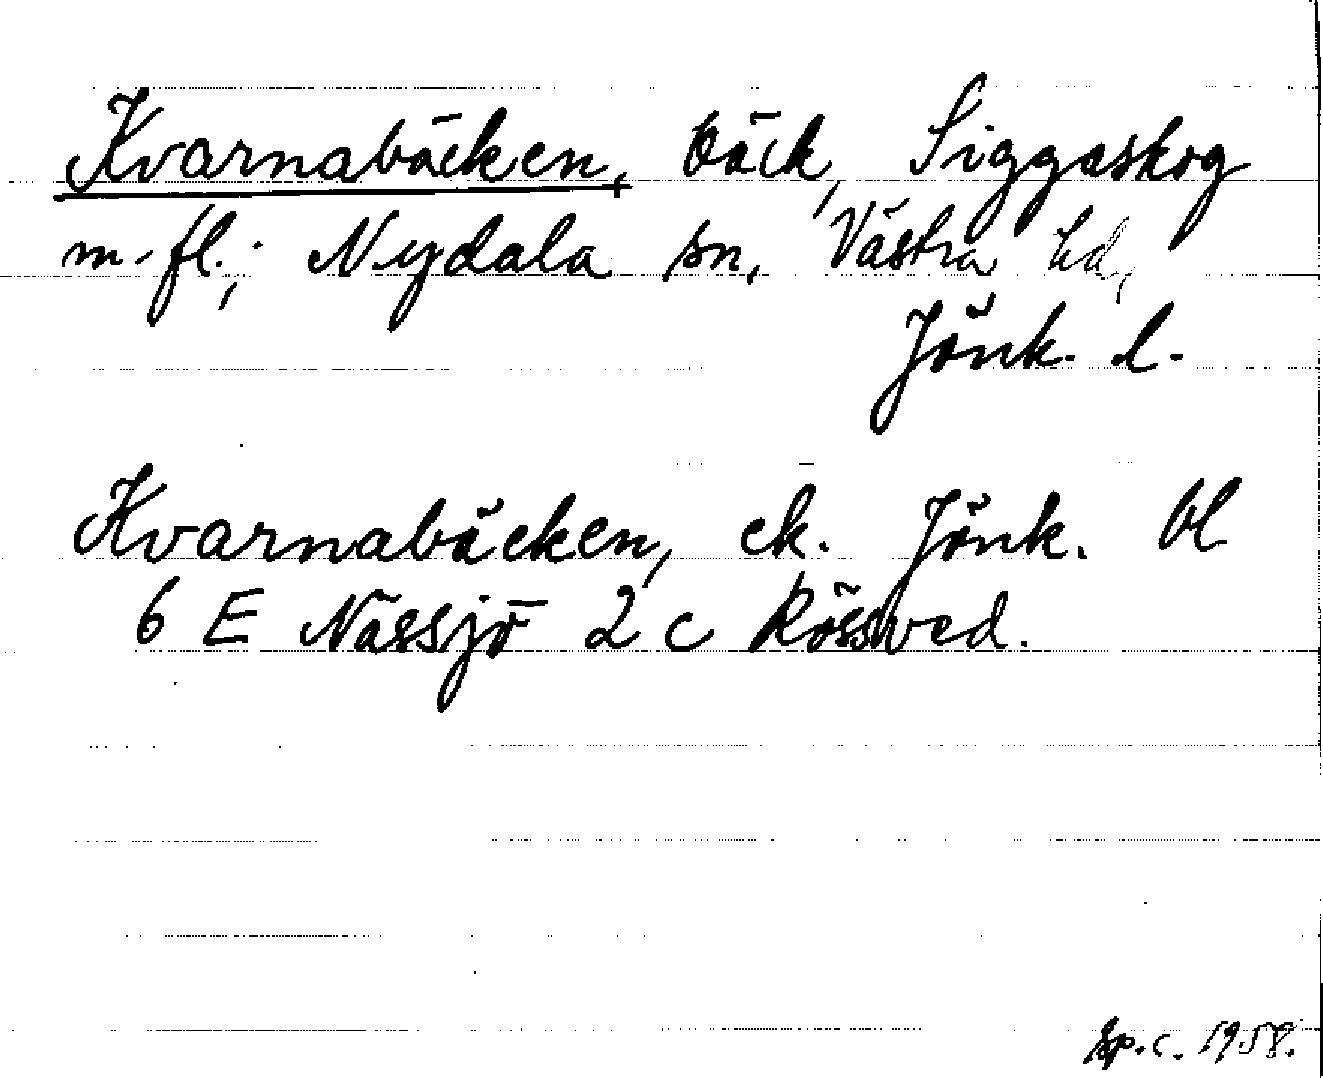 Kvarnabäcken, bäck, Siggaskog
m.fl.; Nydala sn, Västra hd,
Jönk. l.
Kvarnabäcken, ek. Jönk. bl
6 E Nässjö 2 c Rössved.
Ep.c. 1958.